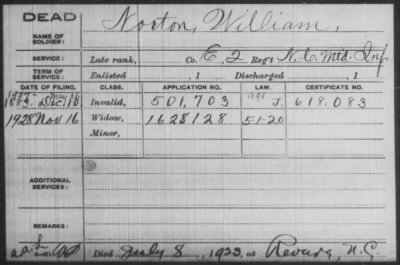 DEAD
Norton, William,
NAME OF SOLDIER:
SERVICE: Late rank, Co. E, 2 Reg't N.C. Mtd. Inf
TERM OF SERVICE: Enlisted , 1 Discharged , 1
DATE OF FILING. CLASS. APPLICATION NO. LAW. CERTIFICATE NO.
1883 Dec 16 Invalid, 501,703 J. 618,083
1928 Nov 16 Widow, 1628128 51-20
Minor,
ADDITIONAL SERVICES:
REMARKS:
Died July 8, 1933, at N.C.